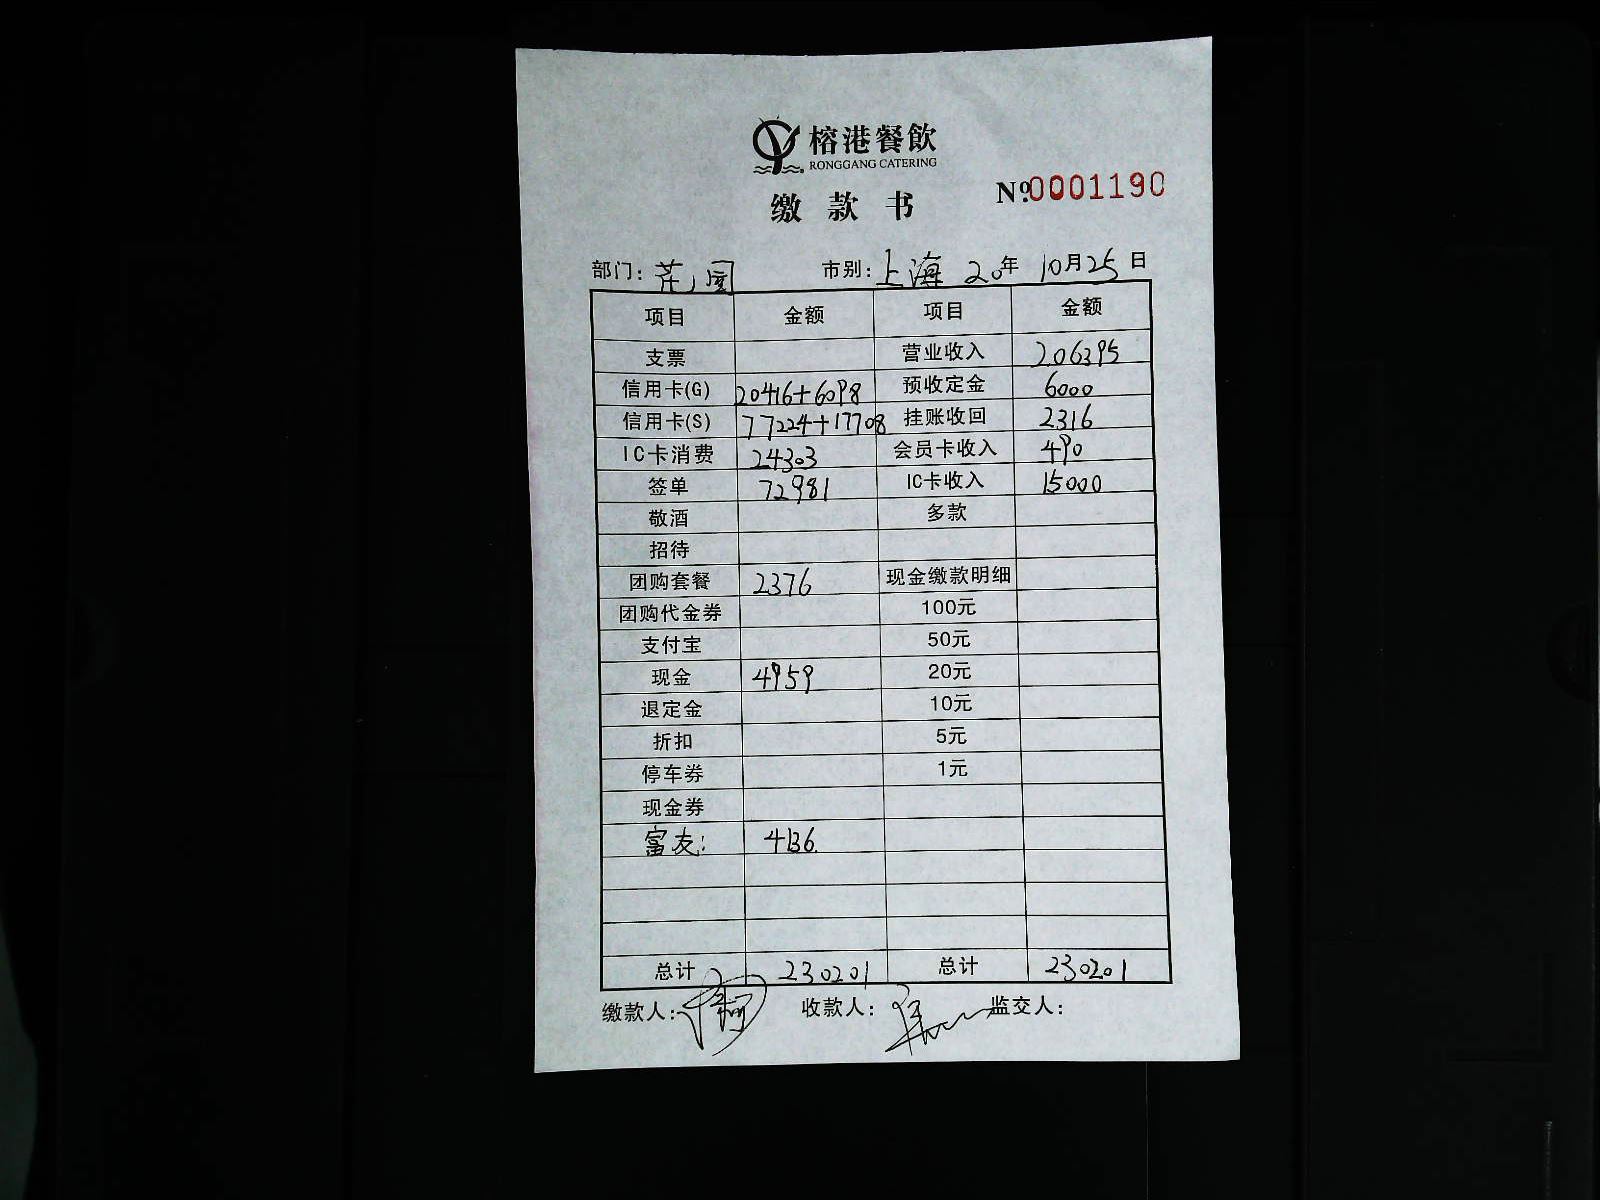 榕港餐飲
RONGGANG CATERING
缴款书
№0001190
部门: 市别: 上海 20年 10月25日
项目 金额 项目 金额
支票 营业收入 206395
信用卡(G) 20416+6098 预收定金 6000
信用卡(S) 77224+17708 挂账收回 2316
IC卡消费 24303 会员卡收入 490
签单 72981 IC卡收入 15000
敬酒 多款
招待
团购套餐 2376 现金缴款明细
团购代金券 100元
支付宝 50元
现金 4959 20元
退定金 10元
折扣 5元
停车券 1元
现金券
富友: 4136.
总计 230201 总计 230201
缴款人: 收款人: 监交人: